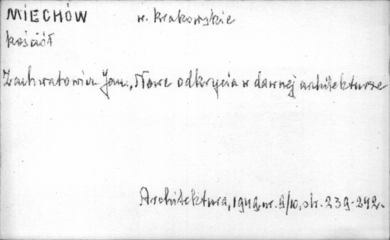 MIECHÓW w. krakowskie
kościół
Zachwatowicz Jan, Nowe odkrycia w dawnej architekturze
Architektura, 1949, nr. 9/10, str. 239-242.